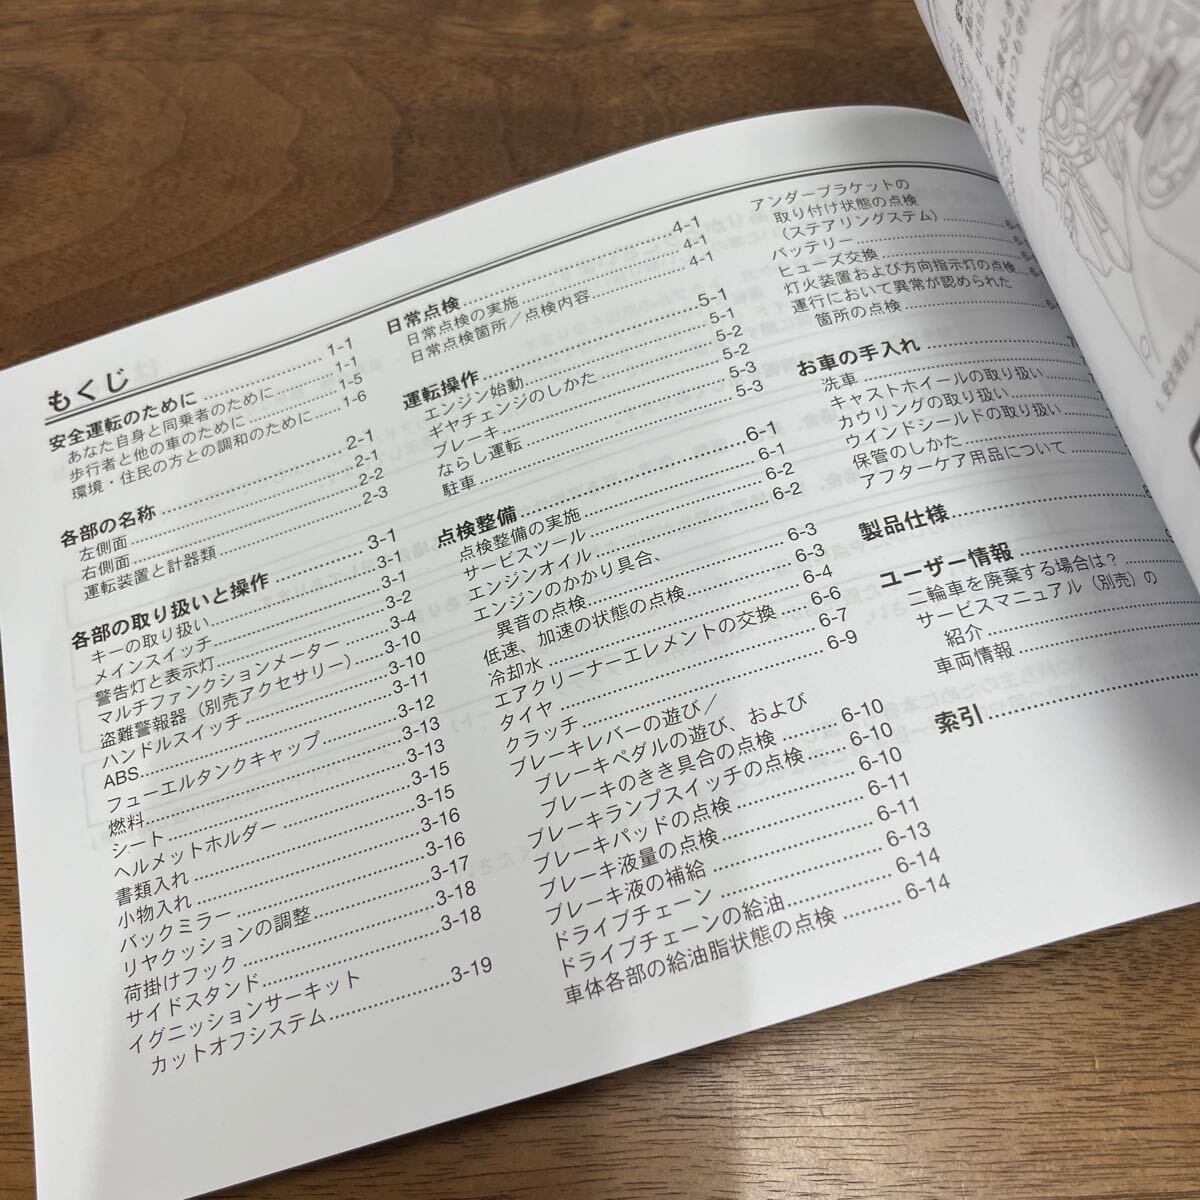 もくじ
安全運転のために ........ 1-1
あなた自身と同乗者のために ........ 1-1
歩行者と他の車のために ........ 1-5
環境・住民の方との調和のために ........ 1-6
各部の名称 ........ 2-1
左側面 ........ 2-1
右側面 ........ 2-2
運転装置と計器類 ........ 2-3
各部の取り扱いと操作 ........ 3-1
キーの取り扱い ........ 3-1
メインスイッチ ........ 3-1
警告灯と表示灯 ........ 3-2
マルチファンクションメーター ........ 3-4
盗難警報器（別売アクセサリー） ........ 3-10
ハンドルスイッチ ........ 3-10
ABS ........ 3-11
フューエルタンクキャップ ........ 3-12
燃料 ........ 3-13
シート ........ 3-13
ヘルメットホルダー ........ 3-15
書類入れ ........ 3-15
小物入れ ........ 3-16
バックミラー ........ 3-16
リヤクッションの調整 ........ 3-17
荷掛けフック ........ 3-18
サイドスタンド ........ 3-18
イグニッションサーキット
カットオフシステム ........ 3-19
日常点検 ........ 4-1
日常点検の実施 ........ 4-1
日常点検箇所／点検内容 ........ 4-1
運転操作 ........ 5-1
エンジン始動 ........ 5-1
ギヤチェンジのしかた ........ 5-2
ブレーキ ........ 5-2
ならし運転 ........ 5-3
駐車 ........ 5-3
点検整備 ........ 6-1
点検整備の実施 ........ 6-1
サービスツール ........ 6-2
エンジンオイル ........ 6-2
エンジンのかかり具合、
異音の点検 ........ 6-3
低速、加速の状態の点検 ........ 6-3
冷却水 ........ 6-4
エアクリーナーエレメントの交換 ........ 6-6
タイヤ ........ 6-7
クラッチ ........ 6-9
ブレーキレバーの遊び／
ブレーキペダルの遊び、および
ブレーキのきき具合の点検 ........ 6-10
ブレーキランプスイッチの点検 ........ 6-10
ブレーキパッドの点検 ........ 6-10
ブレーキ液量の点検 ........ 6-11
ブレーキ液の補給 ........ 6-11
ドライブチェーン ........ 6-13
ドライブチェーンの給油 ........ 6-14
車体各部の給油脂状態の点検 ........ 6-14
アンダーブラケットの
取り付け状態の点検
（ステアリングステム） ........ 6-
バッテリー ........ 6-
ヒューズ交換 ........ 6-
灯火装置および方向指示灯の点検 ........ 6-
運行において異常が認められた
箇所の点検 ........ 6-
お車の手入れ ........ 7
洗車 ........ 7
キャストホイールの取り扱い ........ 7
カウリングの取り扱い ........
ウインドシールドの取り扱い ........
保管のしかた ........
アフターケア用品について ........
製品仕様 ........ 8
ユーザー情報 ........ 9
二輪車を廃棄する場合は？ ........
サービスマニュアル（別売）の
紹介 ........
車両情報 ........
索引 ........